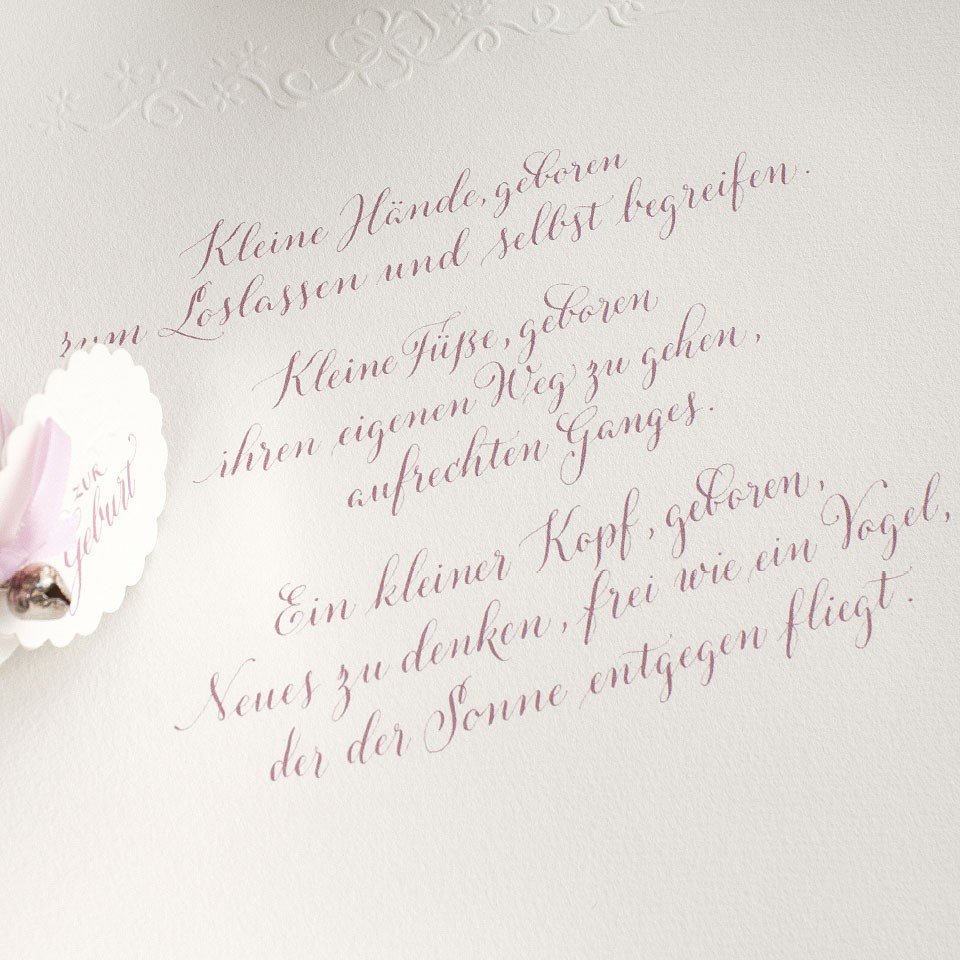 Kleine Hände, geboren
zum Loslassen und selbst begreifen.
Kleine Füße, geboren
ihren eigenen Weg zu gehen,
aufrechten Ganges.
Ein kleiner Kopf, geboren,
Neues zu denken, frei wie ein Vogel,
der der Sonne entgegen fliegt.
zur
Geburt